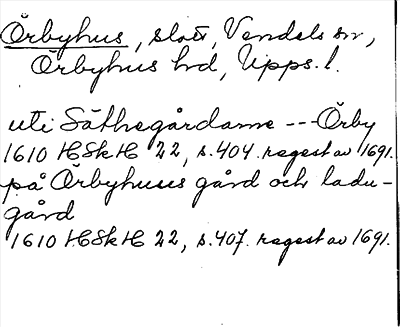 Örbyhus, slott, Vendels sn,
Örbyhus hd, Upps. l.
uti Säthegårdarne --- Örby
1610 HSkH 22, s. 404. regest av 1691.
på Örbyhuses gård och ladu-
gård
1610 HSkH 22, s. 407. regest av 1691.